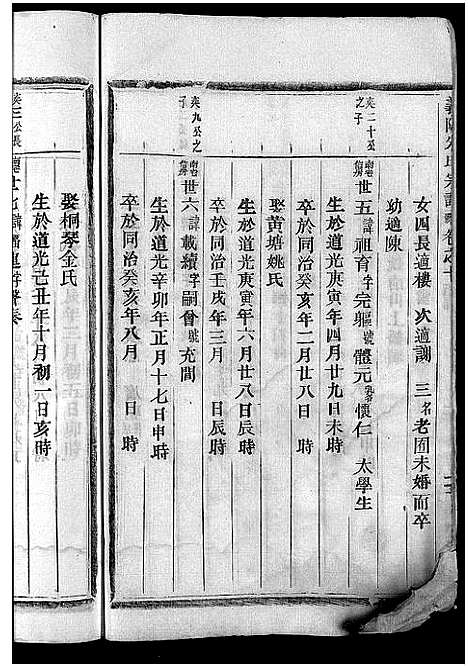 宗譜
女四長適樓 次適 三名老囡未婚而卒
幼適陳
英二十公之子
世五諱祖育字完軀號體元 懷仁 太學生
生於道光庚寅年四月廿九日未時
卒於同治癸亥年二月廿八日 時
娶黃塘姚氏
生於道光庚寅年六月廿八日辰時
卒於同治壬戌年三月 日辰時
英九公之子
世六諱載續字嗣會號充閭
生於道光辛卯年正月十七日申時
卒於同治癸亥年八月 日 時
娶桐琴金氏
生於道光己丑年十月初一日亥時
公長
世七諱